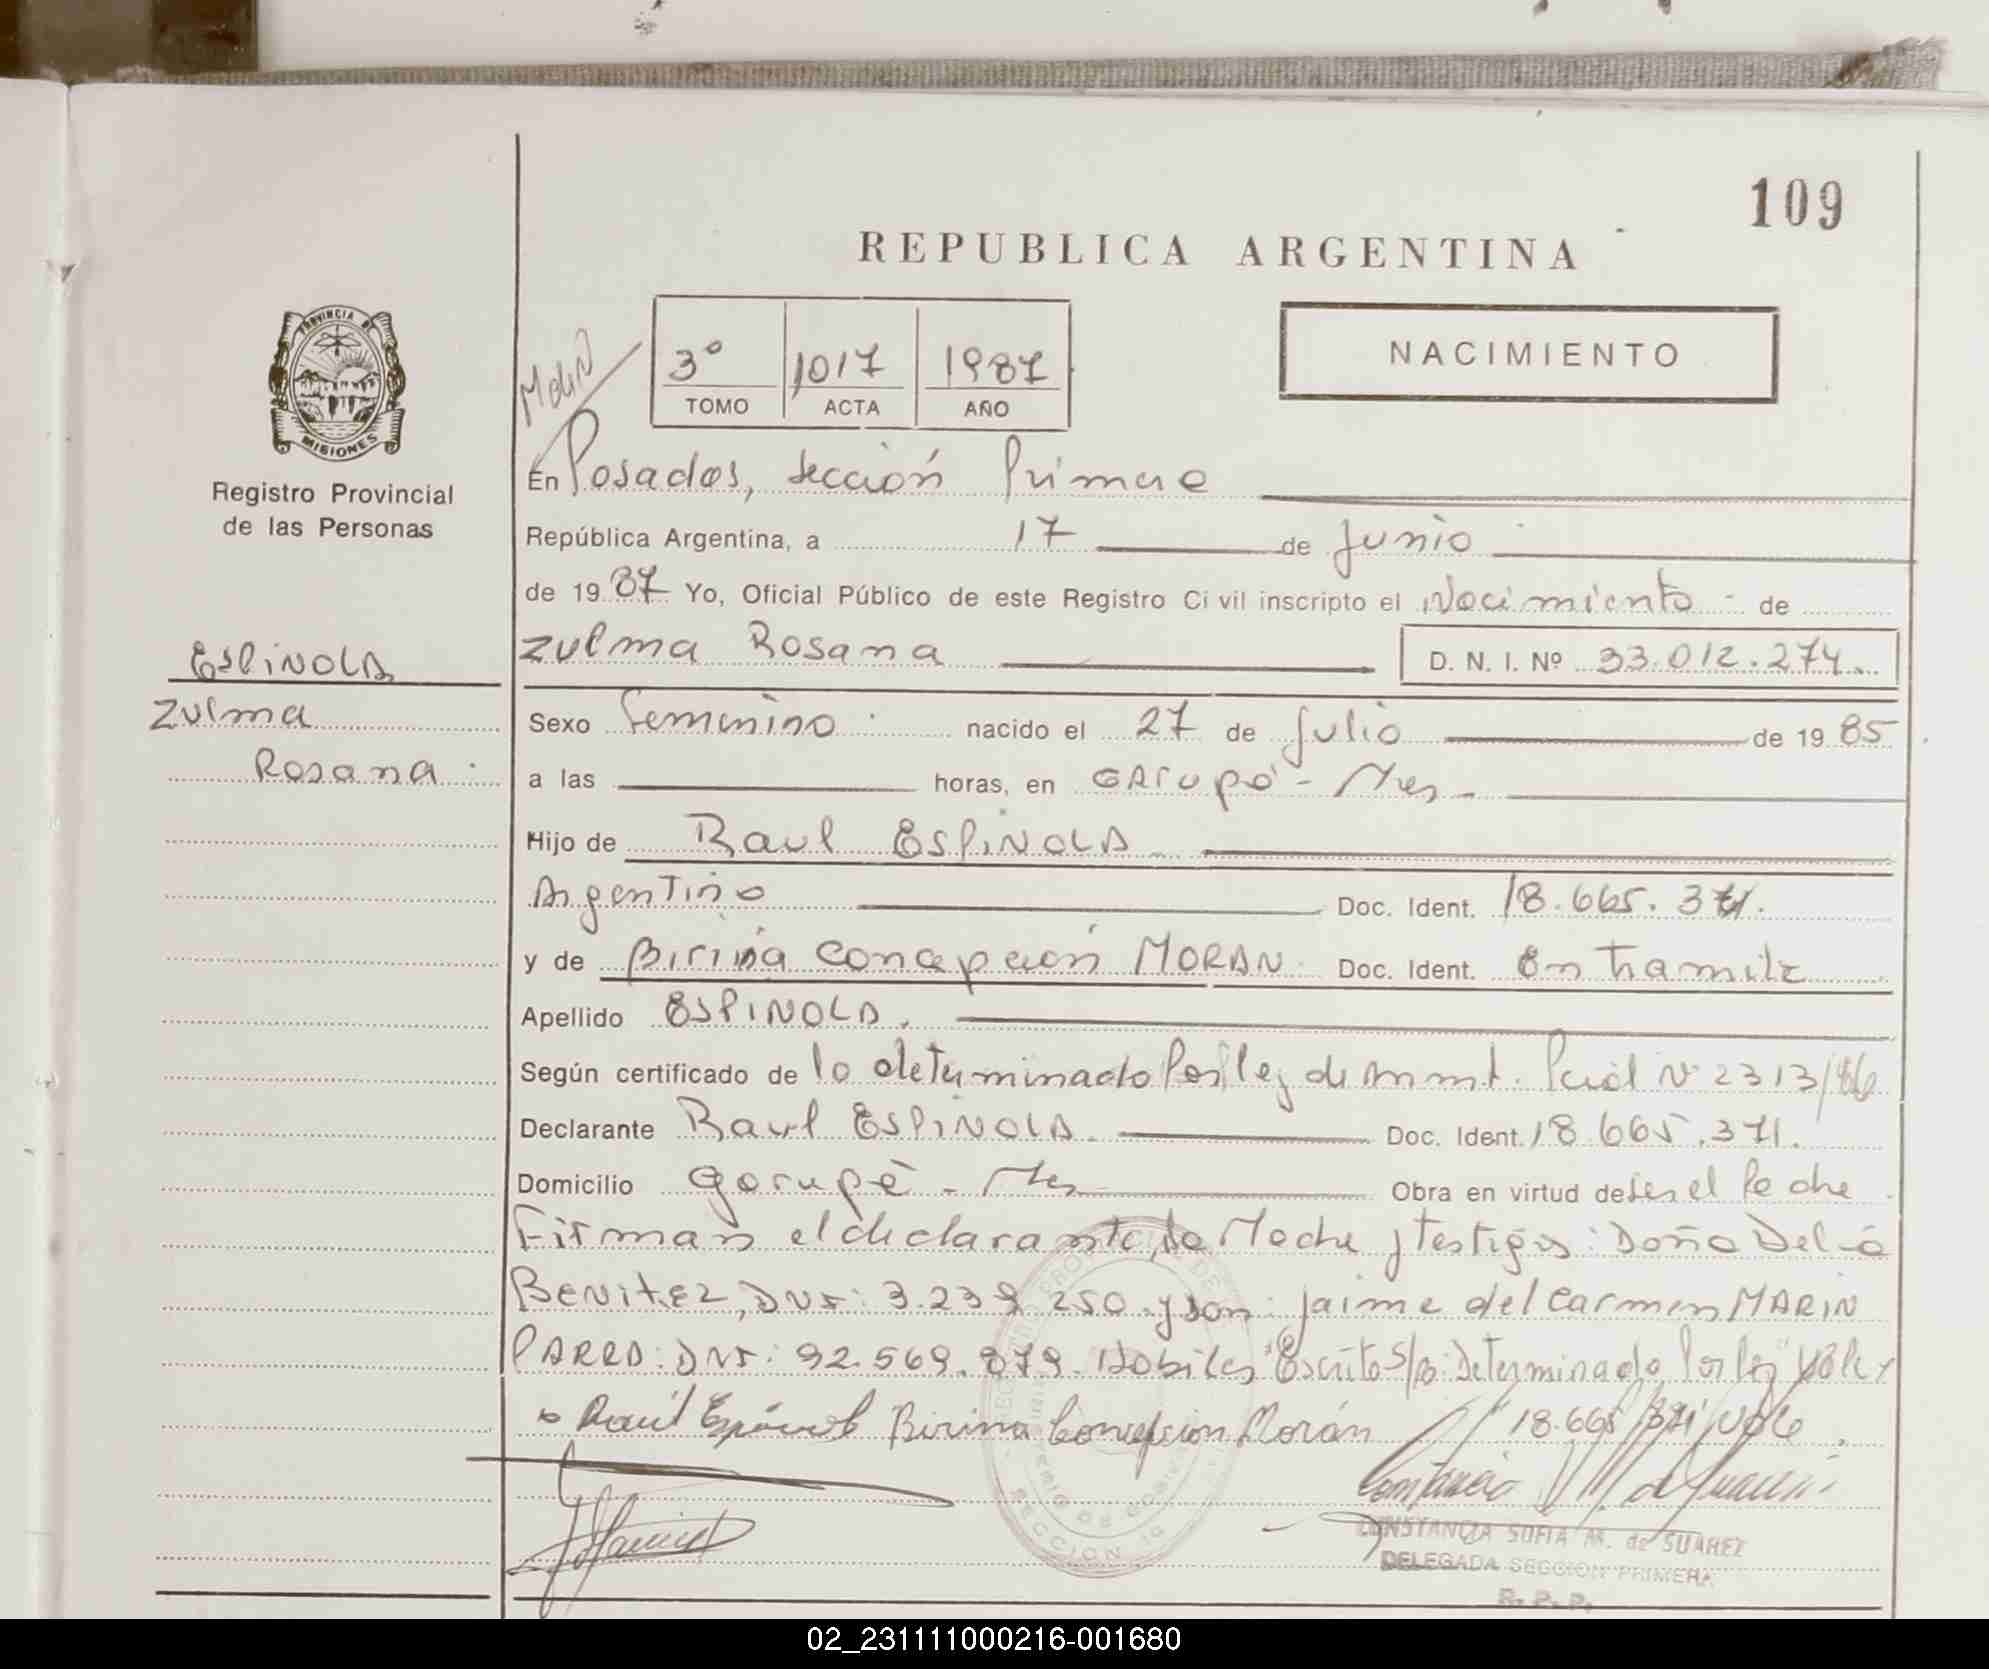 109
REPUBLICA ARGENTINA
PROVINCIA DE
MISIONES
Registro Provincial
de las Personas
3º 1017 1987
TOMO ACTA AÑO
NACIMIENTO
En Posadas, Sección Primera
República Argentina, a 17 de Junio
de 1987 Yo, Oficial Público de este Registro Civil inscripto el Nacimiento de
ESPINOLA
Zulma
Rosana
Zulma Rosana D. N. I. Nº 33.012.274.
Sexo Femenino nacido el 27 de Julio de 1985
a las horas, en GARupá - Mnes
Hijo de Raul ESPINOLA
Argentino Doc. Ident. 18.665.371.
y de Birina Concepción MORAN Doc. Ident. En tramite
Apellido ESPINOLA.
Según certificado de lo determinado Por ley de Nº 2313/86
Declarante Raul ESPINOLA. Doc. Ident. 18.665.371.
Domicilio Garupá - Mnes Obra en virtud de Ser el Padre
Firman el declarante, la Madre y testigos: Doña Delia
BENITEZ, DNI: 3.239.250 y Don: Jaime del Carmen MARIN
PARRA: DNI: 92.569.879. Hábiles "Escrito S/R: Determinado Por ley" Vale
Raúl Espínola Birina Concepcion Morán 18.665.371 Vale
CONSTANCIA SOFIA M. de SUAREZ
DELEGADA SECCION PRIMERA
R. P. P.
02_231111000216-001680